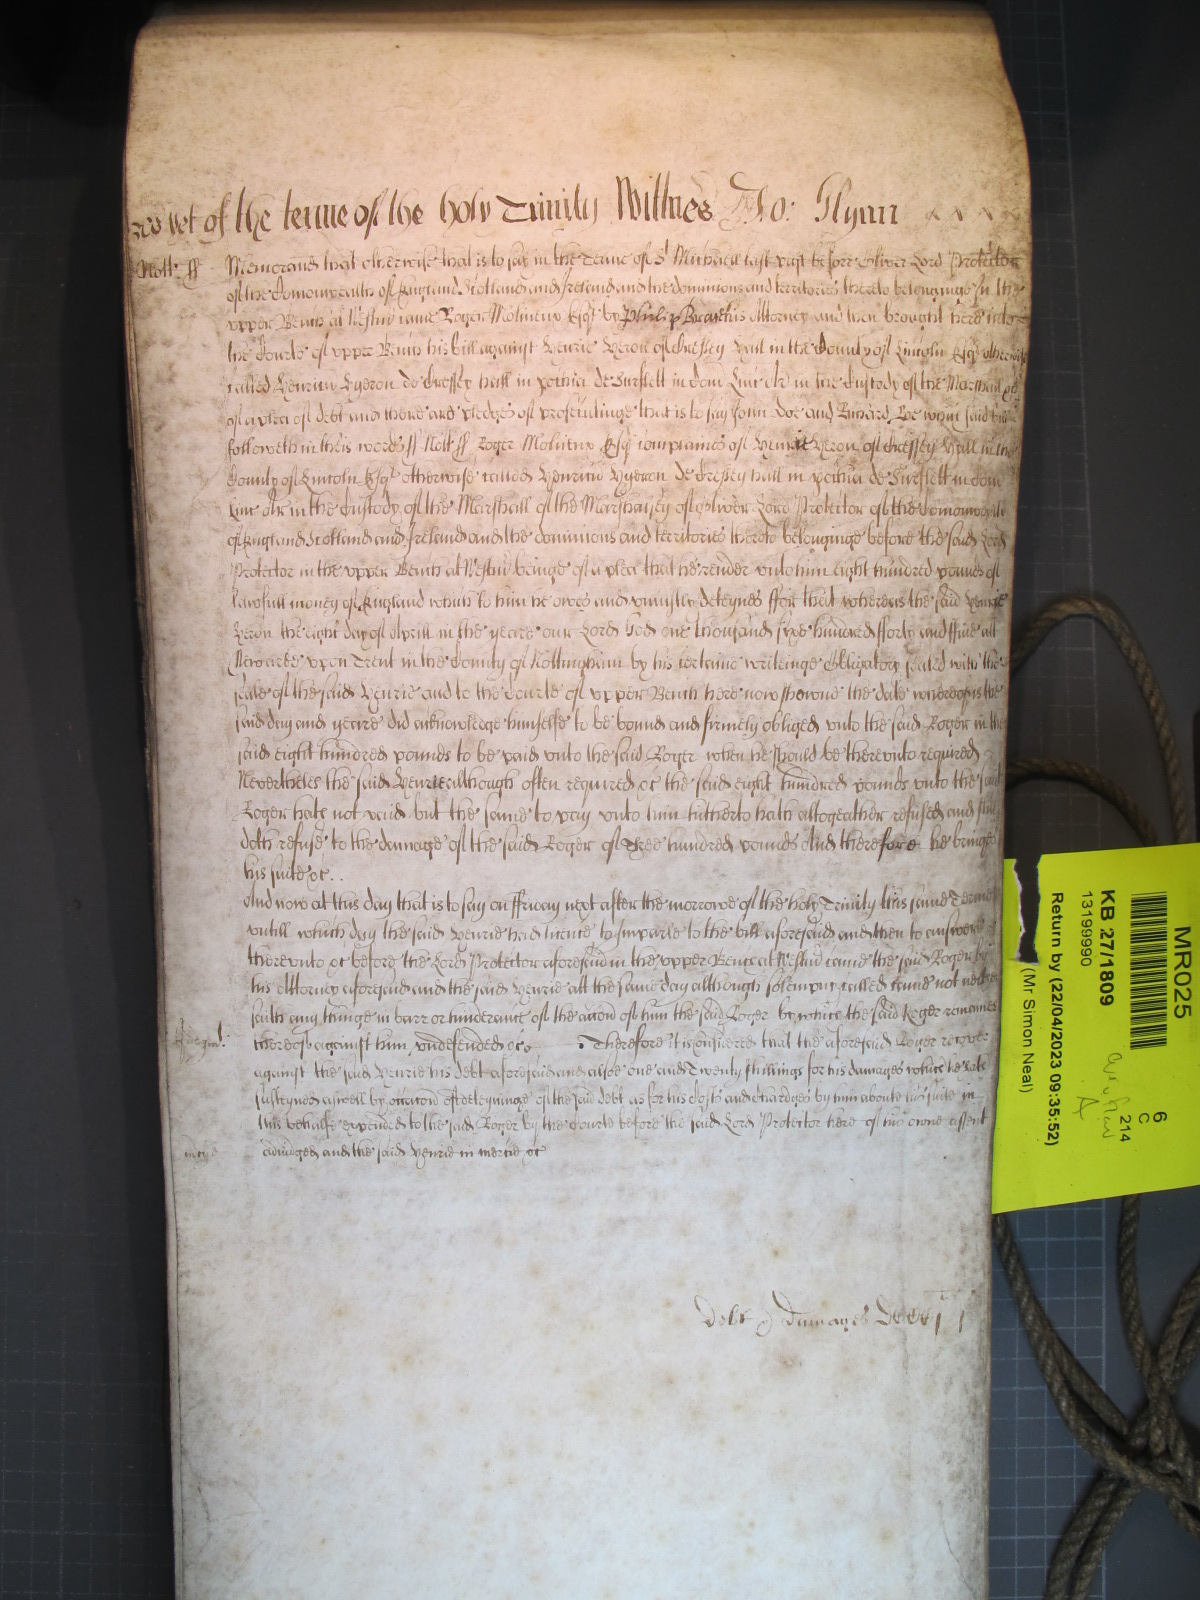 yet of the terme of the holy Trinity Wittnes Jo: Glynn
Nott: ss Memorand that otherwise that is to say in the Terme of St Michaell last past before Oliver Lord Protector
of the Comonwealth of England Scotland and Ireland and the dominions and territories thereto belonginge In the
upper Bench at Westmr came Roger Molineux Esqr by Philip his Attorney and then brought here into
the Courte of upper Bench his bill against Henrie Heron of Cressey Hall in the County of Lincoln Esqr otherwise
called Henrici Hyeron de Cressey hall in de Surflett in Com Linc Ar in the Custody of the Marshall &c
of a plea of debt and there are pledges of prosecutinge that is to say John Doe and Richard Roe which said bill
followeth in theis words ss Nott ss Roger Molineux Esqr complaines of Henrie Heron of Cressey Hall in the
County of Lincoln Esqr otherwise called Henrici Hyeron de Cressey hall in de Surflett in Com
Linc Ar in the Custody of the Marshall of the Marshalsey of Oliver Lord Protector of the Comonwealth
of England Scotland and Ireland and the dominions and territories thereto belonginge before the said Lord
Protector in the upper Bench at Westmr beinge of a plea that he render unto him eight hundred pounds of
lawfull money of England which to him he owes and uniustly deteynes ffor that whereas the said Henrie
Heron the eight day of Aprill in the yeare our Lord God one thousand sixe hundred fforty and ffive att
Newarke upon Trent in the County of Nottingham by his certaine writeinge Obligatory sealed with the
seale of the said Henrie and to the Courte of upper Bench here now showne the date whereof is the
said day and yeare did acknowledge himselfe to be bound and firmely obliged unto the said Roger in the
said eight hundred pounds to be paid unto the said Roger when he should be thereunto required
Nevertheles the said Henrie although often required &c the said eight hundred pounds unto the said
Roger hath not paid but the same to pay unto him hitherto hath altogeather refused and still
doth refuse to the damage of the said Roger of Three hundred pounds And therefore he bringes
his suite &c..
And now at this day that is to say on ffriday next after the morrowe of the holy Trinity this same Terme
untill which day the said Henrie had licence to imparle to the bill aforesaid and then to answere
thereunto &c before the Lord Protector aforesaid in the upper Bench at Westmr came the said Roger by
his Attorney aforesaid and the said Henrie att the same day although solempnly called came not neither
saith any thinge in barr or hinderance of the accon of him the said Roger by which the said Roger remaines
Judgmt: thereof against him undefended &c Therefore it is considered that the aforesaid Roger recover
against the said Henrie his debt aforesaid and alsoe one and Twenty shillings for his damages which he hath
susteyned aswell by occasion of deteyninge of the said debt as for his costs and chardges by him about his suite in
this behalfe expended to the said Roger by the Courte before the said Lord Protector here of his owne assent
adiudged and the said Henrie in mercie &c
Debt & damages
MR025
KB 27/1809
13199990
Return by (22/04/2023 09:35:52)
(Mr Simon Neal)
6
C
214
A